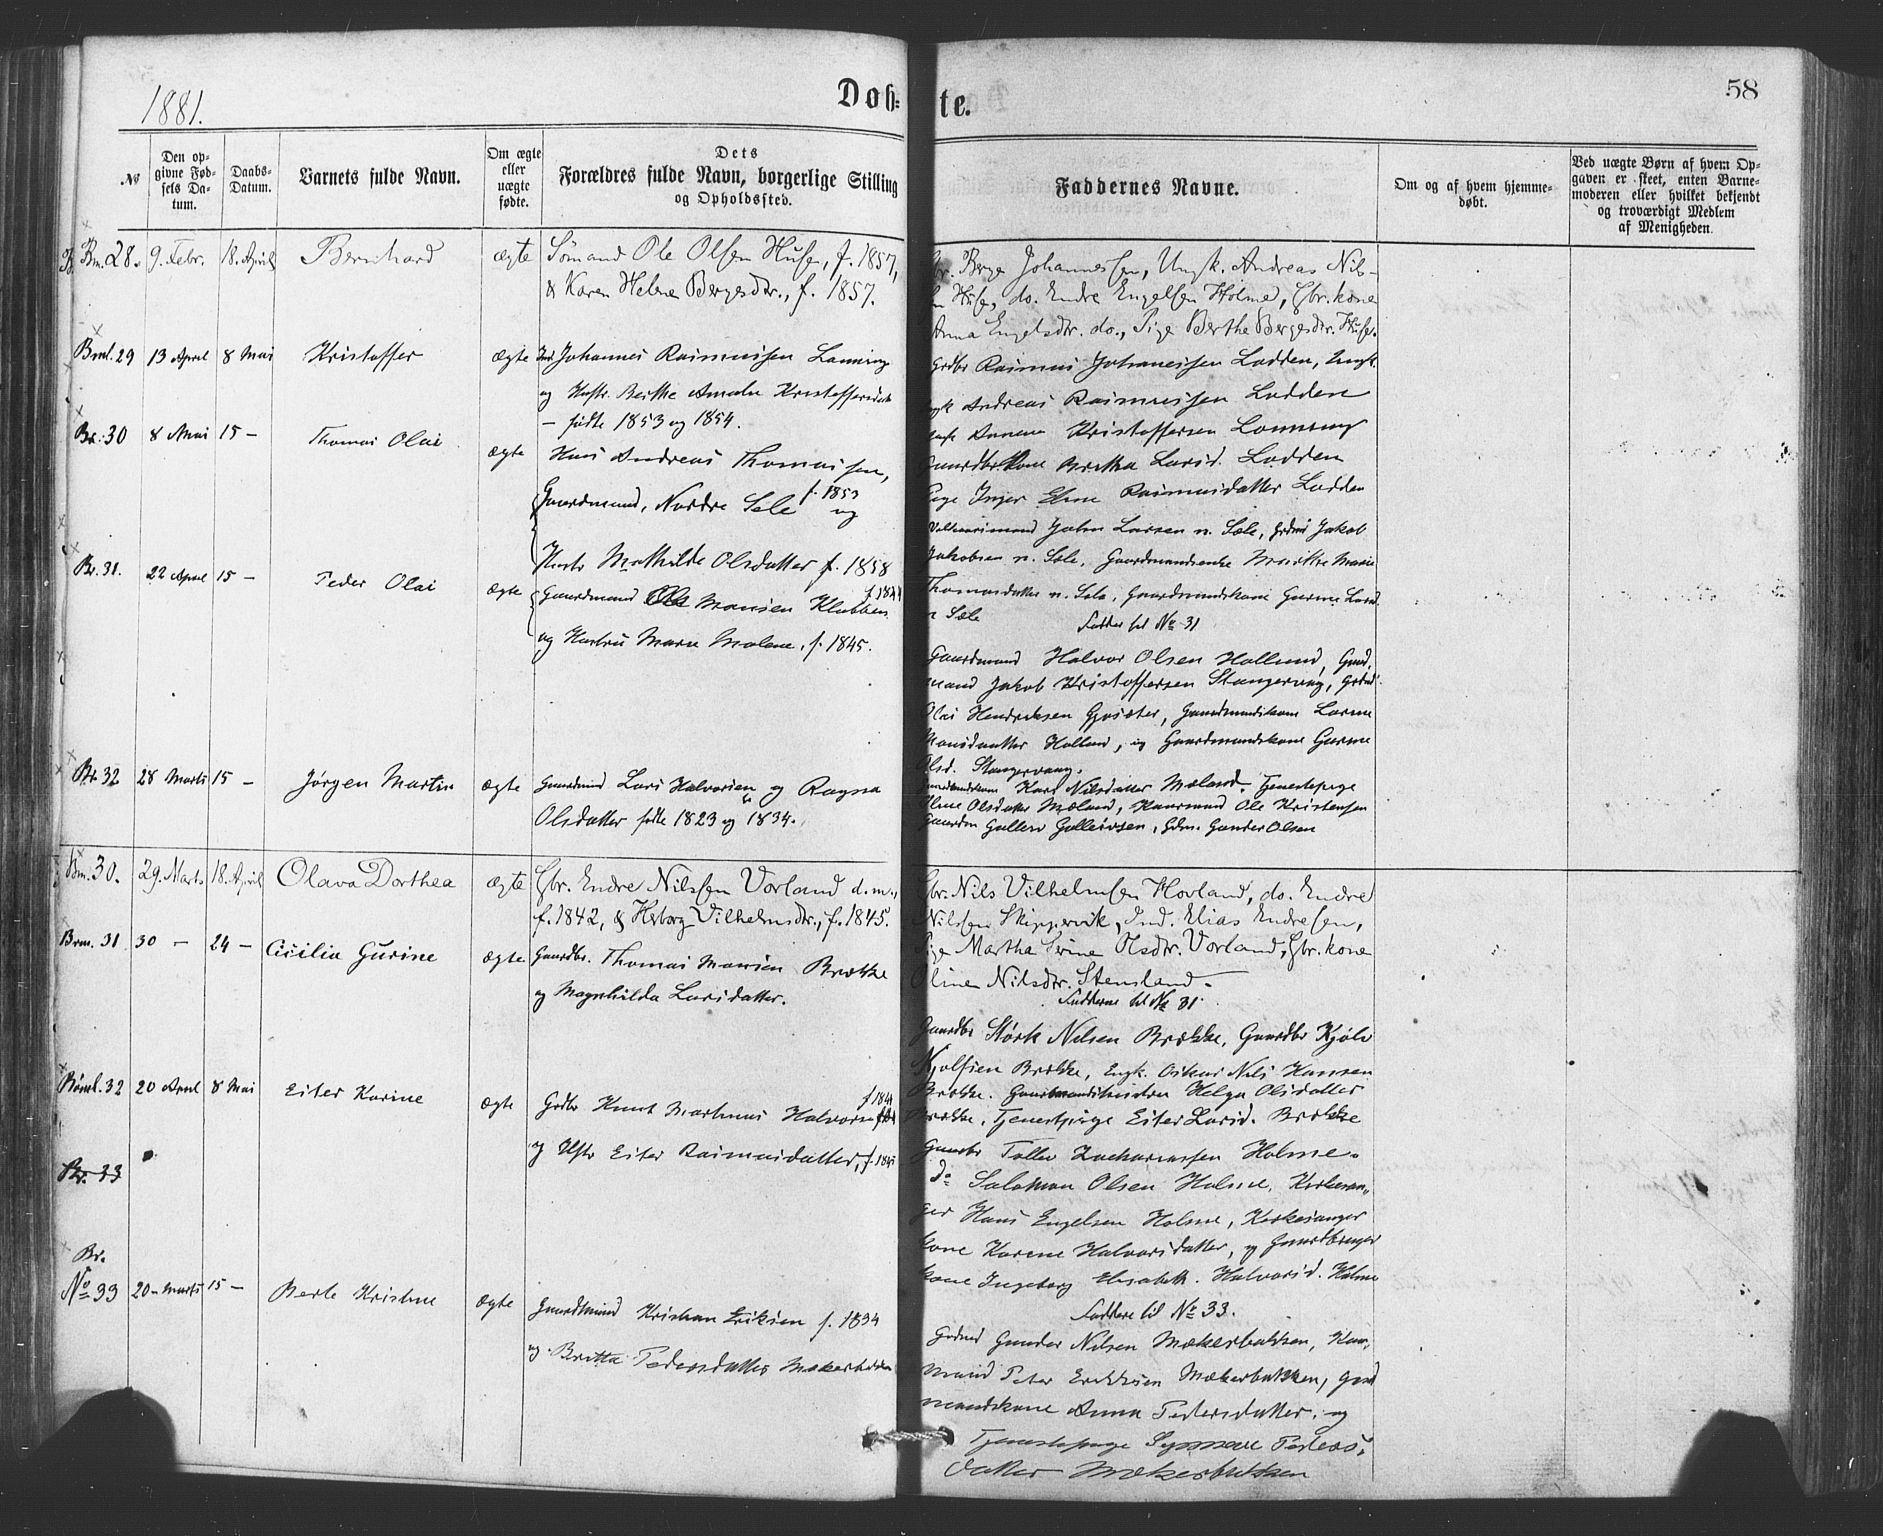 1881.
Døb-
te.
58
No
Den op-
givne Fød-
sels Da-
tum.
Daabs-
Datum.
Barnets fulde Navn.
Om ægte
eller
uægte
fødte.
Dets
Forældres fulde Navn, borgerlige Stilling
og Opholdssted.
Faddernes Navne.
Om og af hvem hjemme-
døbt.
Ved uægte Børn af hvem Op-
gaven er skeet, enten Barne-
moderen eller hvilket bekjendt
og troværdigt Medlem
af Menigheden.
Bm. 28. 9. Febr. 18. April Bernhard ægte Sømand Ole Olsen Huse, f. 1857,
& Karen Helene Bergesdtr., f. 1857.
Berge Johannessen, Ungk. Andreas Nil-
Huse, do. Endre Engelsen Holme, Gbr. kone
Anna Engelsdtr. do., Pige Berthe Bergesdtr. Huse.
Bml. 29 13 April 8 Mai Kristoffer ægte Johannes Rasmussen Lønning
og Hustr. Berthe Amalia Kristoffersdatt
- fødte 1853 og 1854.
Grdbr Rasmus Johanessen Lodden, Ungk.
Andreas Rasmussen Lodden
Kristoffersen Lønning
Gaardbrkone Britha Larsd. Lodden
Pige Inger Eline Rasmusdatter Lodden
Br. 30 8 Mai 15 - Thomas Olai ægte Hans Andreas Thomassen,
Gaardmand, Nordre Sele f. 1853 og
Hustr Mathilde Olsdatter f. 1858
John Larsen n. Sele, Grdmd Jakob
Jakobsen n. Sele, Gaardmandsenke Marie
Thomasdatter n. Sele, Gaardmandskone Gurine Larsd.
n Sele
Br. 31. 22 April 15 - Peder Olai ægte Gaardmand Ole Monsen Klubben f 1844
og Hustru Marn Malene, f. 1845.
Fadder til No 31
Gaardmand Halvor Olsen Holland, Gaard.
mand Jakob Kristoffersen Stangervaag, Grdmd
Olai Hendriksen Gjøsæter, Gaardmandskone Larine
Monsdaatter Holland, og Gaardmandskone Gurine
Olsd. Stangervaag.
Br 32 28 Marts 15 - Jørgen Martin ægte Gaardmd Lars Halvorsen og Ragna
Olsdatter fødte 1823 og 1834.
Kari Nilsdatter Mæland, Tjenestepige
Eline Olsdatter Mæland, Huusmand Ole Kristensen
Gaardm Gulleiv Gulleivsen, Gdm. Gunder Olsen
Bm. 30. 29. Marts 18. April Olava Dorthea ægte Gbr. Endre Nilssen Vorland d. m.,
f. 1842, & Herborg Vilhelmsdtr., f. 1845.
Gbr. Nils Vilhelmsen Hovland, do. Endre
Nilssen Skippervik, Ind. Elias Endresen,
Pige Martha Serine Olsdtr. Vorland, Gbr. kone
Oline Nilsdtr. Stensland.
Brm. 31 30 - 24 - Cicilia Gurine ægte Gaardbr. Thomas Monsen Brække
og Magnhilda Larsdatter.
Fadderne til No 31.
Gaardbr Størk Nilsen Brække, Gaardbr Kjølv
Kjølsien Brække, Ungk. Oskar Nils Hansen
Brække. Gaardmandshustru Helga Olsdatter
Brække, Tjenestpige Eiler Larsd. Brække
Bøml. 32 20 April 8 Mai Eiler Karine ægte Grdbr Knut Martinus Halvorsen f 1841
og Hstr Eiler Rasmusdatter, f. 1841
Gaardbr Tollev Zachariassen Holme.
do Salomon Olsen Holme, Kirkesan-
ger Hans Engelsen Holme, Kirkesanger
kone Karine Halvorsdatter, og Gaardbruger
kone Ingeborg Elisabeth Halvorsd. Holme
Br. 33
Br.
No 33 20- Marts 15 - Berte Kristine ægte Gaardmand Kristian Eriksen f. 1834
og Britta Pedersdatter Mækerbakken
Faddere til No 33.
Grdmd Gunder Nilsen Mækerbakken, Huus,
mand Peter Eriksen Mækerbakken, Gaard
mandskone Anna Pedersdatter, og
Tjenestepige Synneve Peders,
datter Mækerbakken